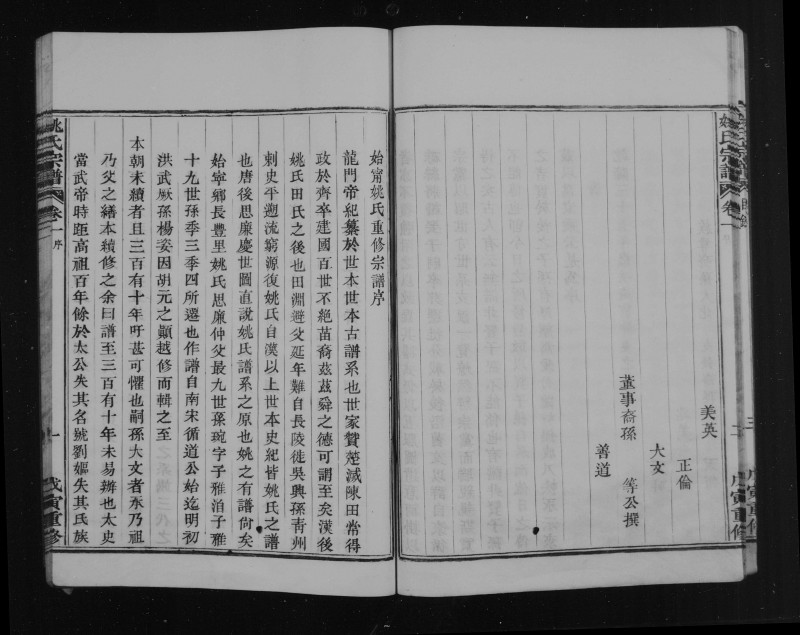 美英
正倫
大文
董事裔孫 等公撰
善道
姚氏宗譜 卷一
戊寅重修
始甯姚氏重修宗譜序
龍門帝紀纂於世本世本古譜系也世家贊楚滅陳田常得
政於齊卒建國百世不絕苗裔茲茲舜之德可謂至矣漢後
姚氏田氏之後也田淵避父延年難自長陵徙吳興孫青州
刺史平遡流窮源復姚氏自漢以上世本史紀皆姚氏之譜
也唐後思廉慶世圖直說姚氏譜系之原也姚之有譜尚矣
始甯鄉長豐里姚氏思廉仲父最九世孫琬字子雅洎子雅
十九世孫季三季四所遷也作譜自南宋循道公始迄明初
洪武厥孫楊姿因胡元之顛越修而輯之至
本朝未續者且三百有十年吁甚可懼也嗣孫大文者東乃祖
乃父之繕本續修之余曰譜至三百有十年未易辦也太史
當武帝時距高祖百年餘於太公失其名號劉媼失其氏族
姚氏宗譜 卷一 序
一
戊寅重修